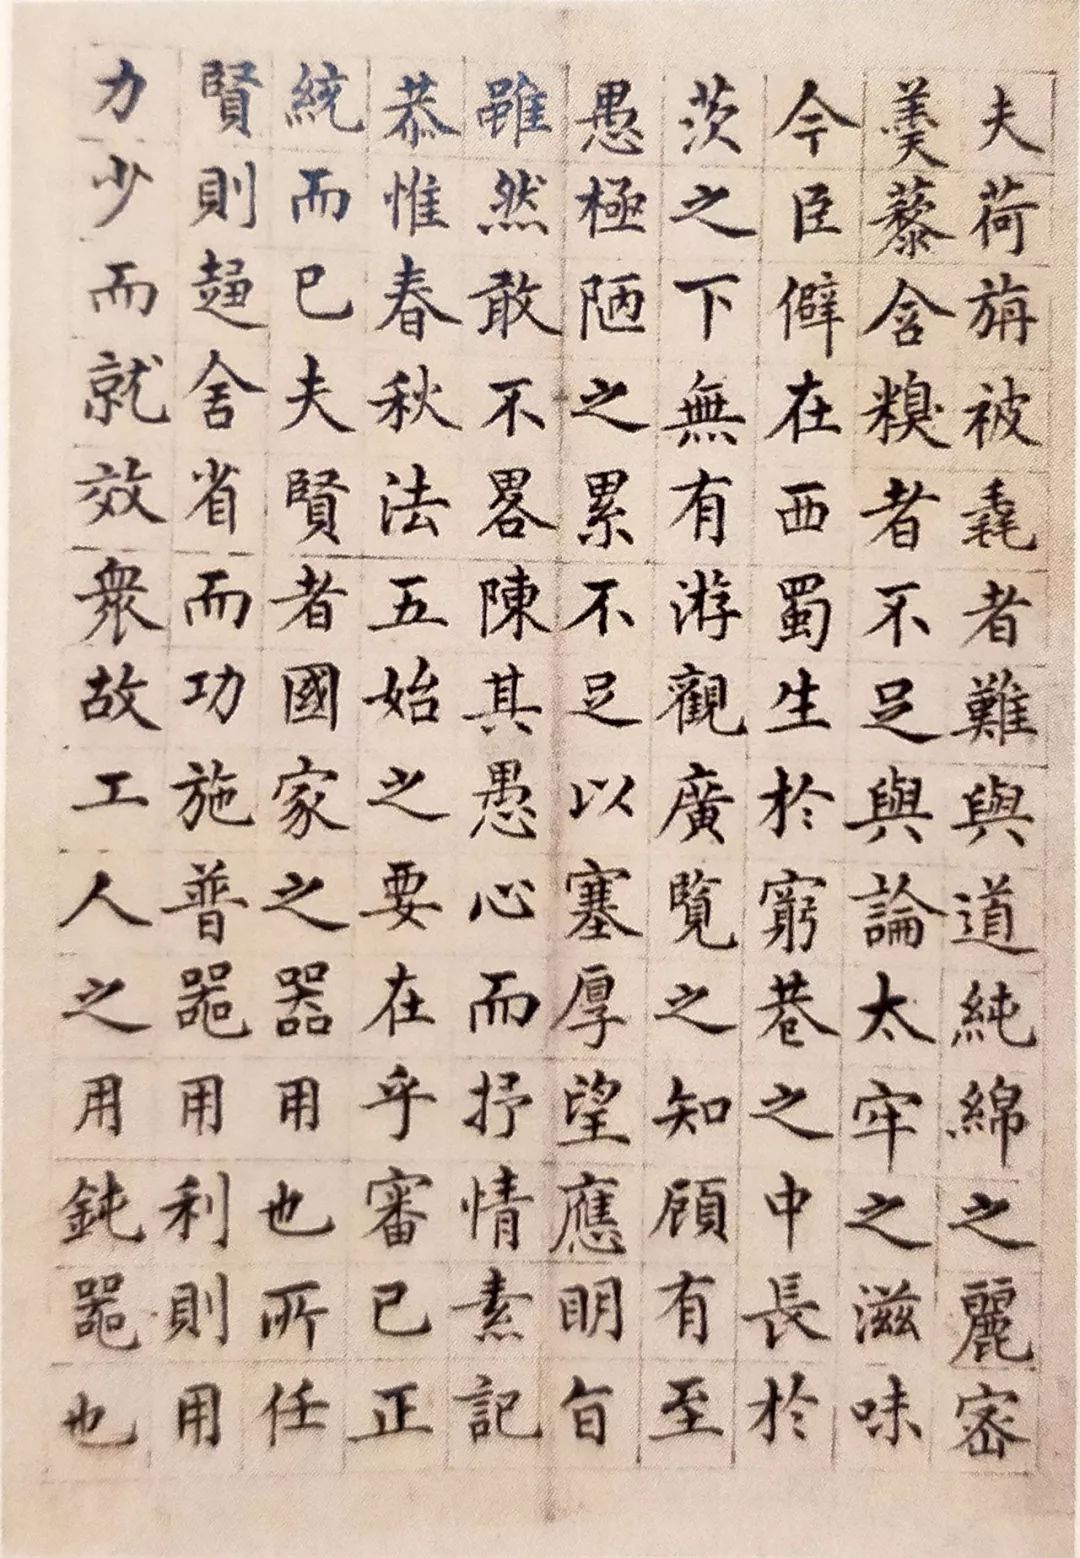 夫荷旃被毳者難與道純綿之麗密
羹藜含糗者不足與論太牢之滋味
今臣僻在西蜀生於窮巷之中長於
茨之下無有游觀廣覽之知顧有至
愚極陋之累不足以塞厚望應明旨
雖然敢不畧陳其愚心而抒情素記
恭惟春秋法五始之要在乎審已正
統而已夫賢者國家之器用也所任
賢則趨舍省而功施普器用利則用
力少而就效衆故工人之用鈍器也